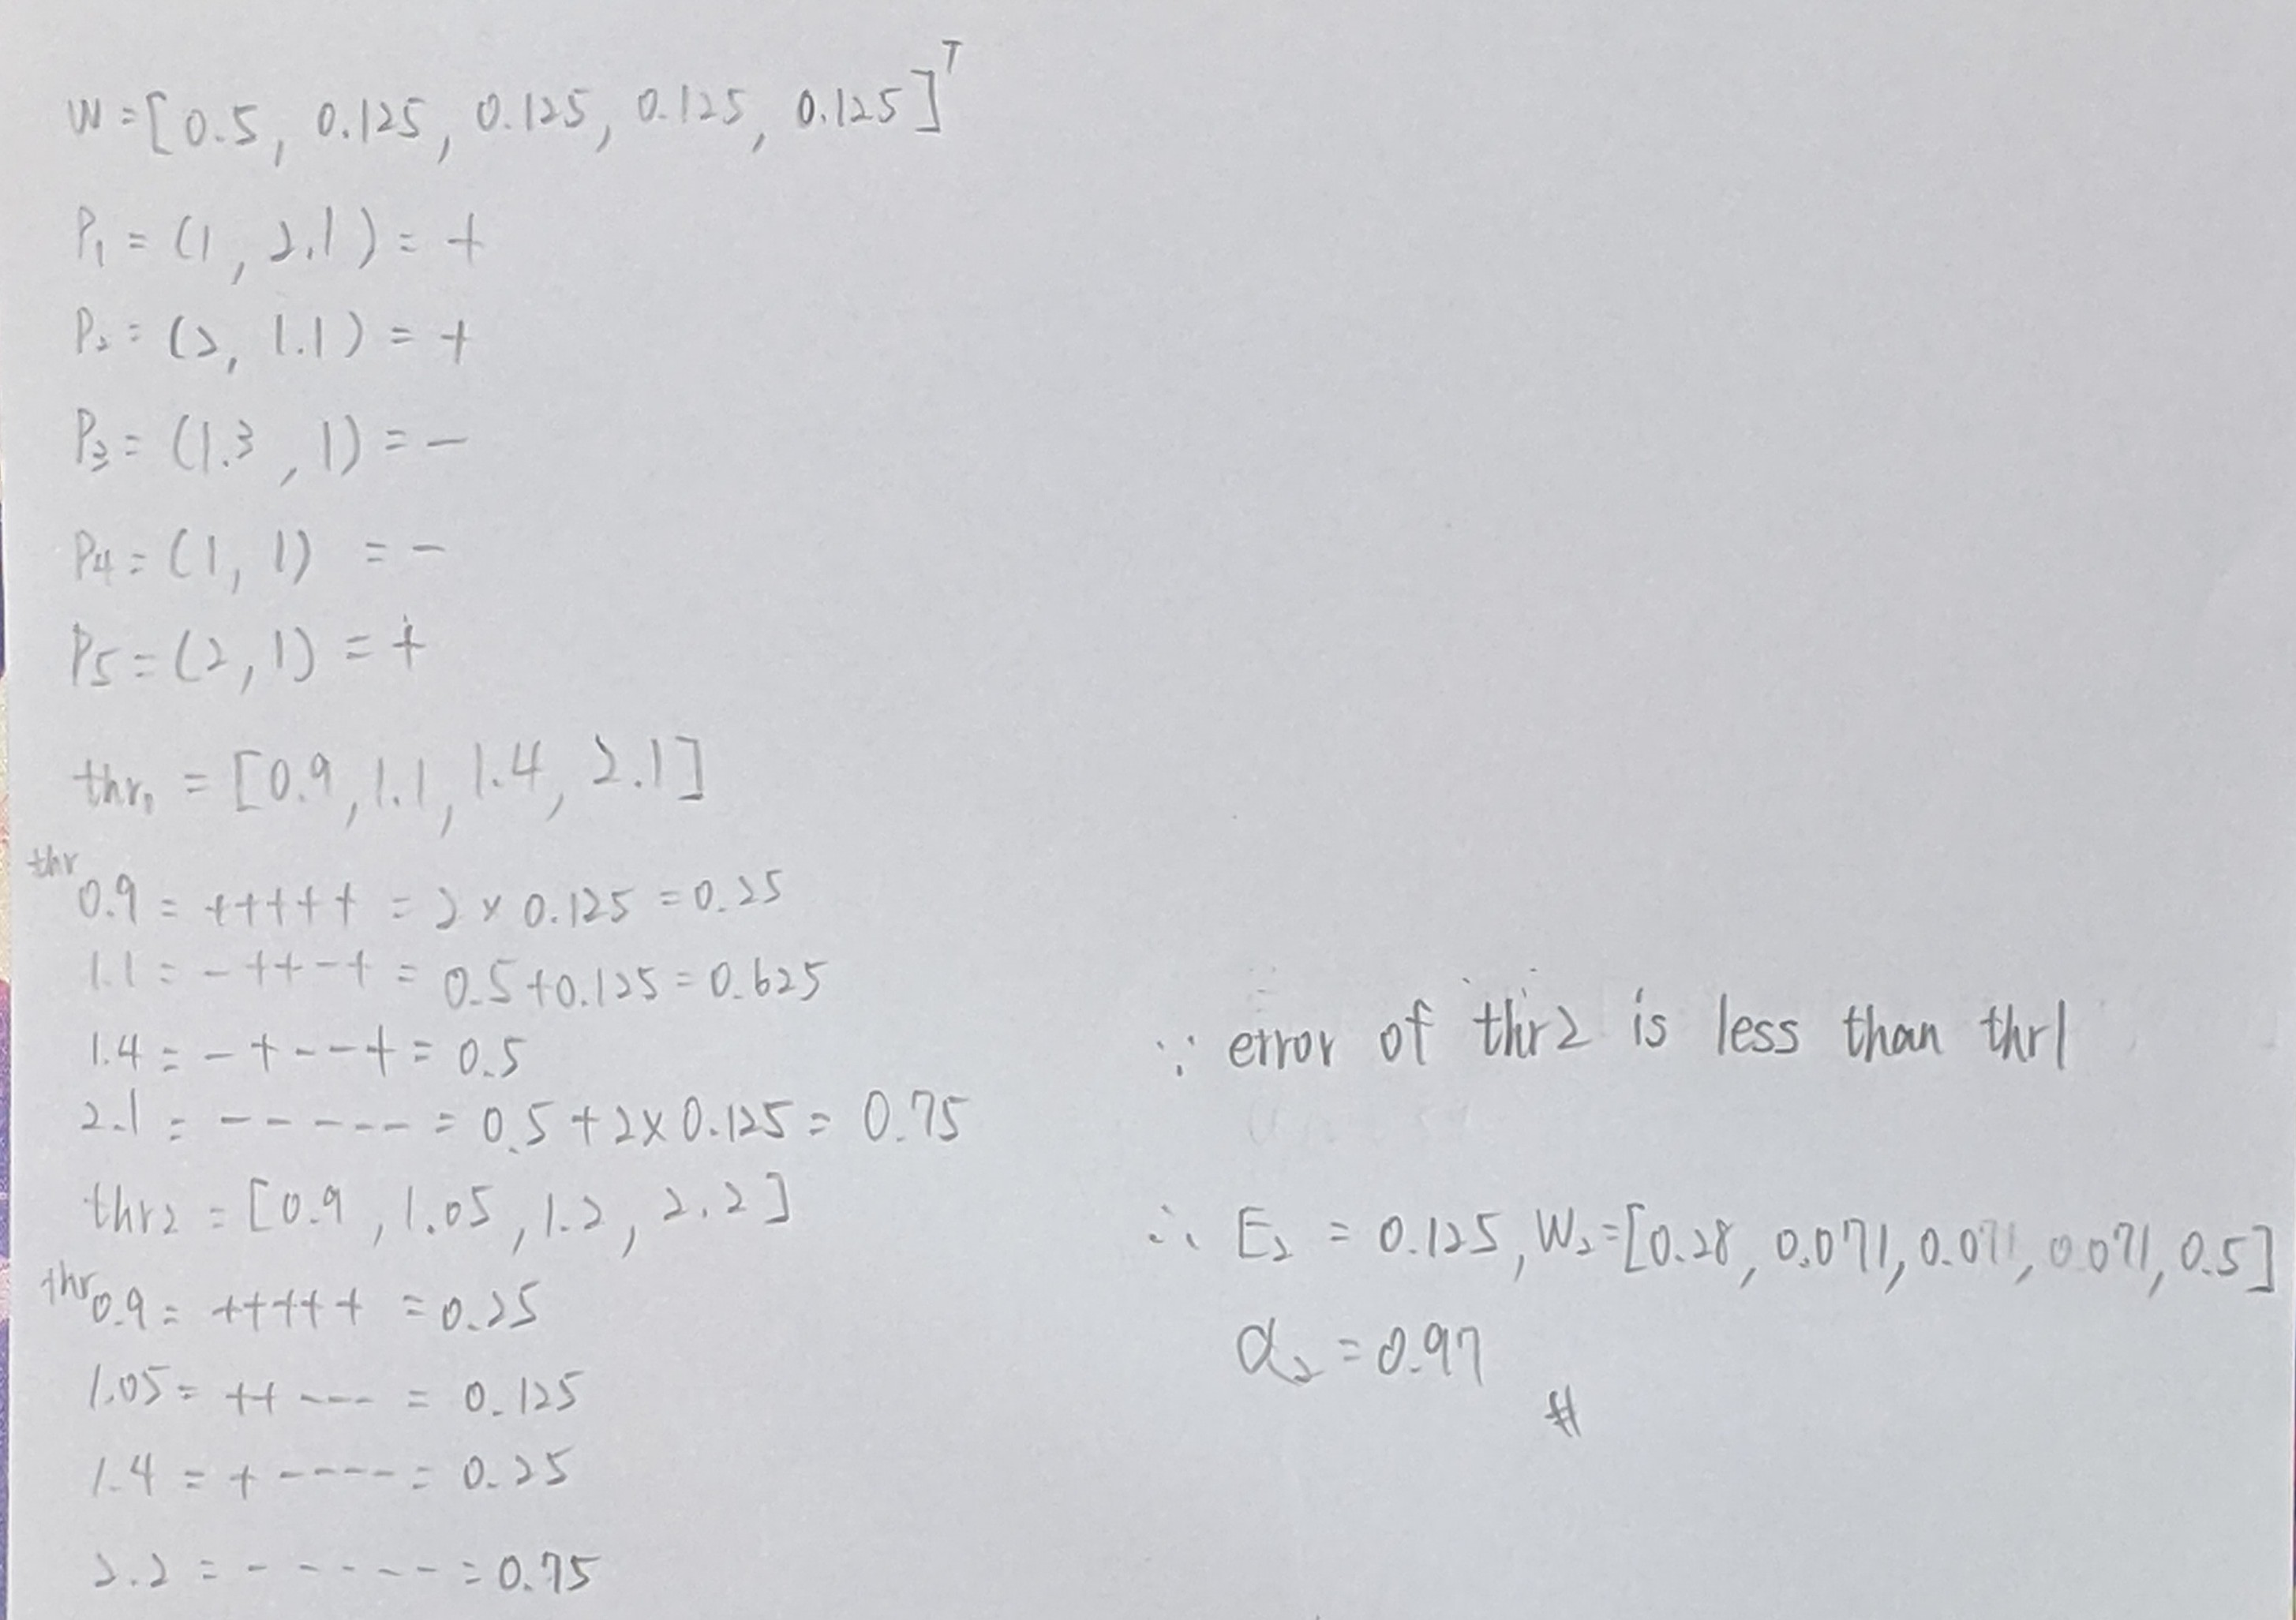 W = [0.5, 0.125, 0.125, 0.125, 0.125]ᵀ
P₁ = (1, 2.1) = +
P₂ = (2, 1.1) = +
P₃ = (1.3, 1) = -
P₄ = (1, 1) = -
P₅ = (2, 1) = +
thr₁ = [0.9, 1.1, 1.4, 2.1]
thr
0.9 = +++++ = 2 × 0.125 = 0.25
1.1 = -++-+ = 0.5+0.125 = 0.625
1.4 = -+--+ = 0.5
2.1 = ----- = 0.5 + 2×0.125 = 0.75
thr2 = [0.9, 1.05, 1.2, 2.2]
thr
0.9 = +++++ = 0.25
1.05 = ++--- = 0.125
1.4 = +---- = 0.25
2.2 = ----- = 0.75
∵ error of thr2 is less than thr1
∴ E₂ = 0.125, W₂ = [0.28, 0.071, 0.071, 0.071, 0.5]
α₂ = 0.97
#